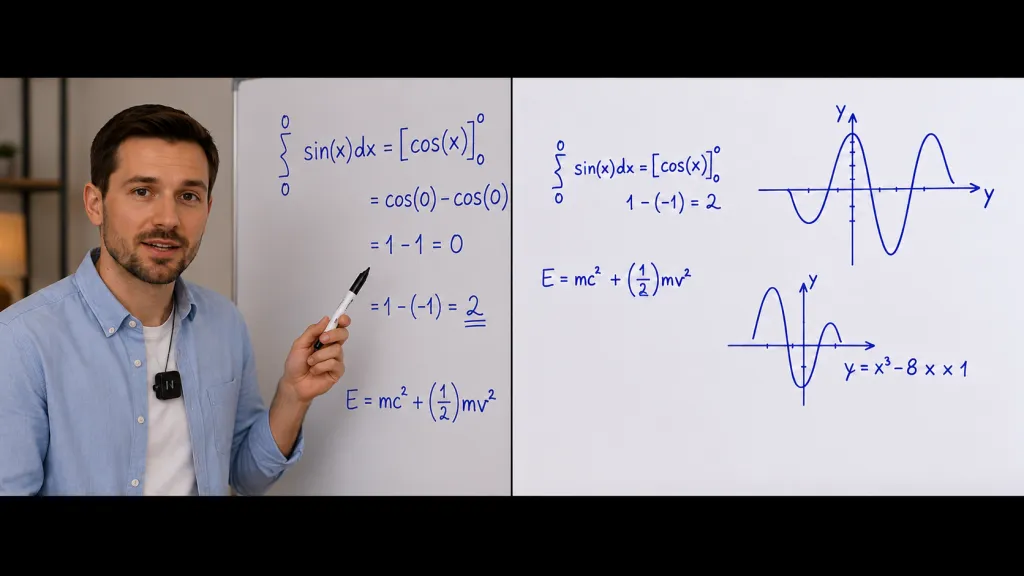 ∫₀⁰ sin(x)dx = [cos(x)]₀⁰
= cos(0) – cos(0)
= 1 – 1 = 0
= 1 – (-1) = 2
E = mc² + (1/2)mv²
∫₀⁰ sin(x)dx = [cos(x)]₀⁰
1 – (-1) = 2
E = mc² + (1/2)mv²
y
y
y
y = x³ – 8 x x 1